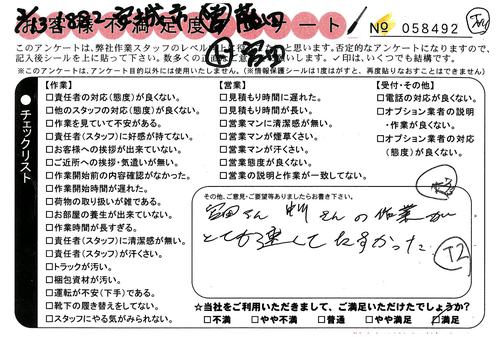 お客様不満足度アンケート
№ 058492
このアンケートは、弊社作業スタッフのレベル
と思います。否定的なアンケートになりますので、
記入後シールを上に貼って下さい。数多くの
します。✓印は、いくつでも結構です。
※このアンケートは、アンケート目的以外には使用いたしません。(※情報保護シールは1度はがすと、再度貼りなおすことはできません)
チェックリスト
【作業】
□責任者の対応(態度)が良くない。
□他のスタッフの対応(態度)が良くない。
□作業を見ていて不安がある。
□責任者(スタッフ)に好感が持てない。
□お客様への挨拶が出来ていない。
□ご近所への挨拶・気遣いが無い。
□作業開始前の内容確認がなかった。
□作業開始時間が遅れた。
□荷物の取り扱いが雑である。
□お部屋の養生が出来ていない。
□作業時間が長すぎる。
□責任者(スタッフ)に清潔感が無い。
□責任者(スタッフ)が汗くさい。
□トラックが汚い。
□梱包資材が汚い。
□運転が不安(下手)である。
□靴下の履き替えをしてない。
□スタッフにやる気がみられない。
【営業】
□見積もり時間に遅れた。
□見積もり時間が長い。
□営業マンに清潔感が無い。
□営業マンが煙草くさい。
□営業マンが汗くさい。
□営業態度が良くない。
□営業の説明と作業が一致してない。
【受付・その他】
□電話の対応が良くない。
□オプション業者の説明
・作業が良くない。
□オプション業者の対応
(態度)が良くない。
その他、ご意見・ご要望等ありましたらお書き下さい。
宮田さん
さんの作業が
とても速くてたすかった
T2
☆当社をご利用いただきまして、ご満足いただけたでしょうか?
□不満 □やや不満 □普通 □やや満足 ☑満足